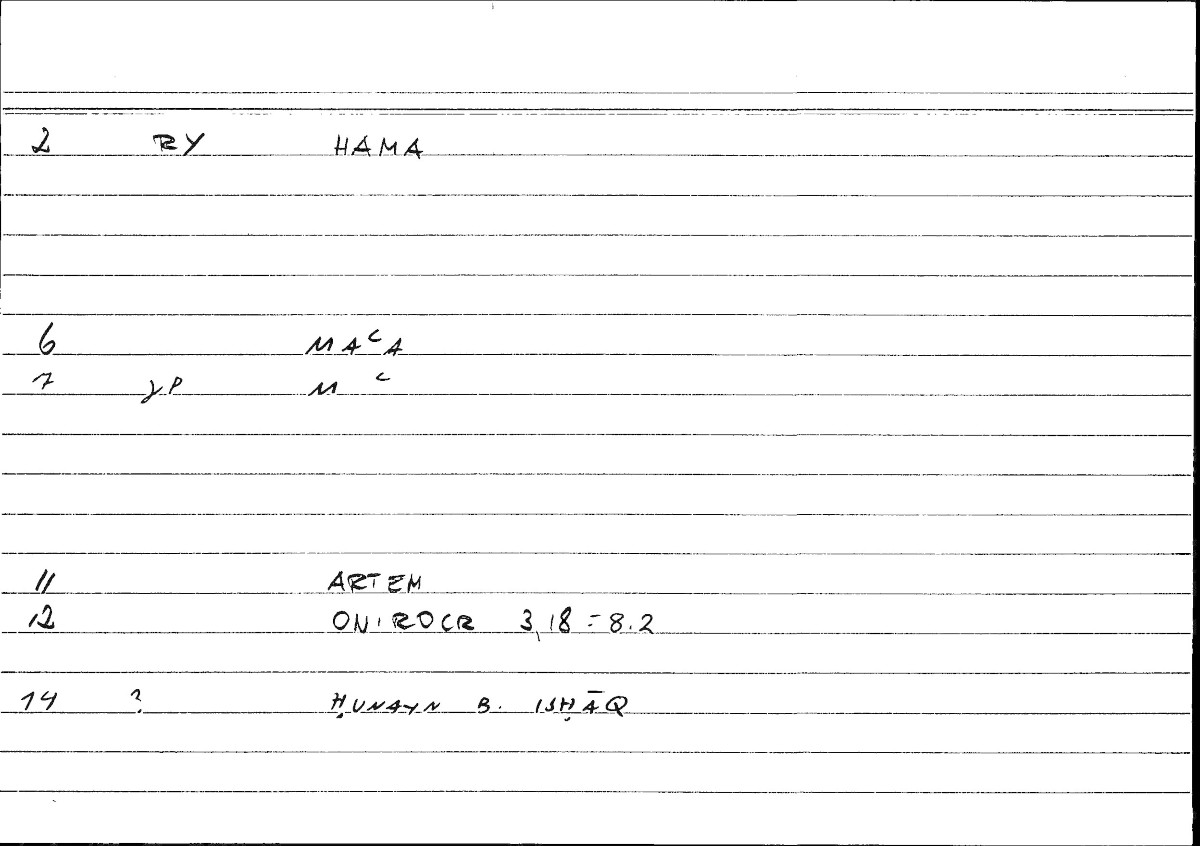 2 RY HAMA
6 MAʿA
7 γP M ʿ
11 ARTEM
12 ONIROCR 3,18 = 8.2
14 ? ḤUNAYN B. ISḤĀQ